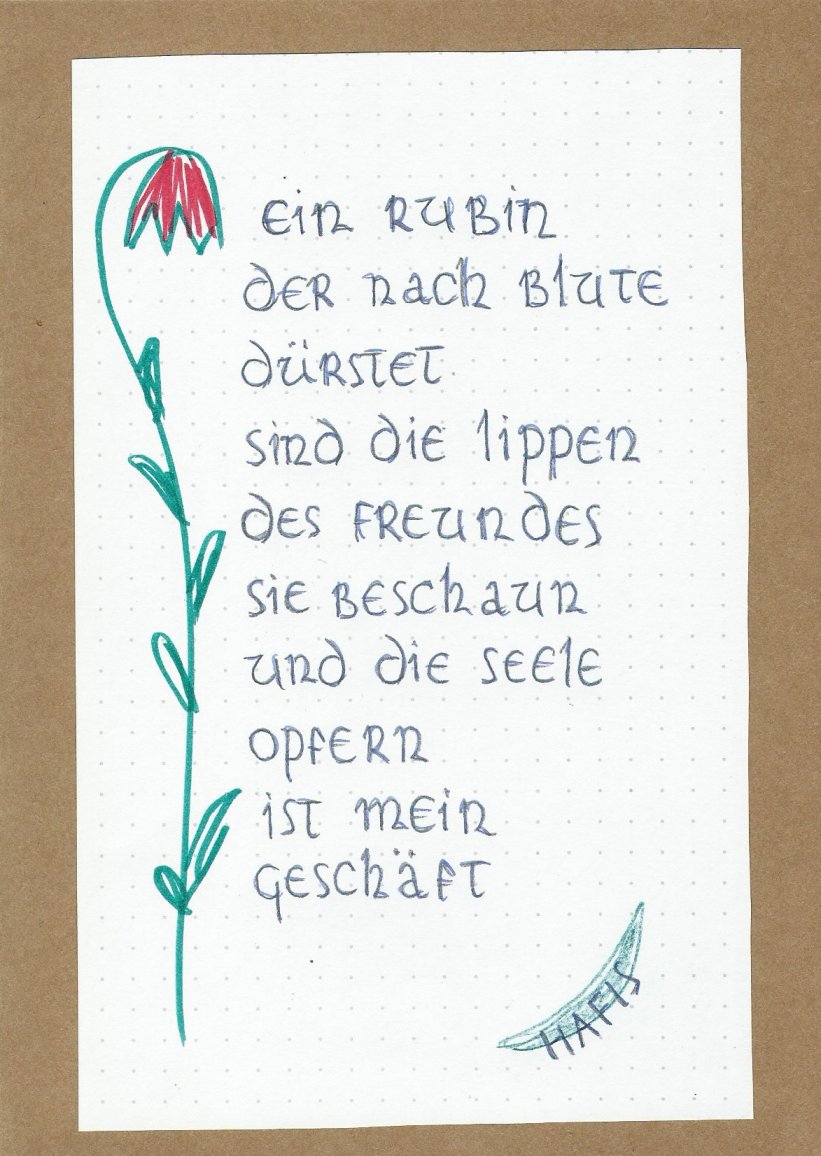 Ein Rubin
der nach Blute
dürstet
sind die lippen
des Freundes
sie Beschaun
und die Seele
opfern
ist mein
Geschäft
HAFIS